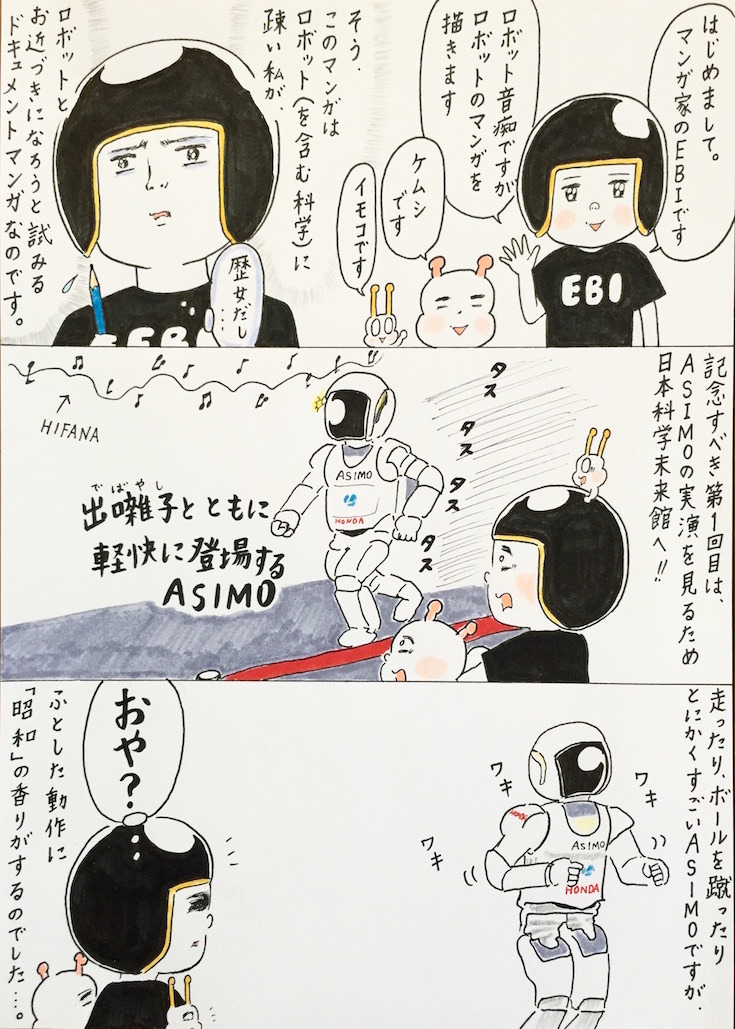 はじめまして。
マンガ家のEBIです
ロボット音痴ですが
ロボットのマンガを
描きます
ケムシ
です
イモコです
EBI
そう、
このマンガは
ロボット(を含む科学)に
疎い私が、
ロボットと
お近づきになろうと試みる
ドキュメントマンガなのです。
歴女だし…
EBI
記念すべき第1回目は、
ASIMOの実演を見るため
日本科学未来館へ!!
タス
タス
タス
タス
ASIMO
HONDA
HIFANA
でばやし
出囃子とともに
軽快に登場する
ASIMO
走ったり、ボールを蹴ったり
とにかくすごいASIMOですが、
ワキ
ワキ
ワキ
HONDA
ASIMO
HONDA
おや?
ふとした動作に
「昭和」の香りがするのでした…。